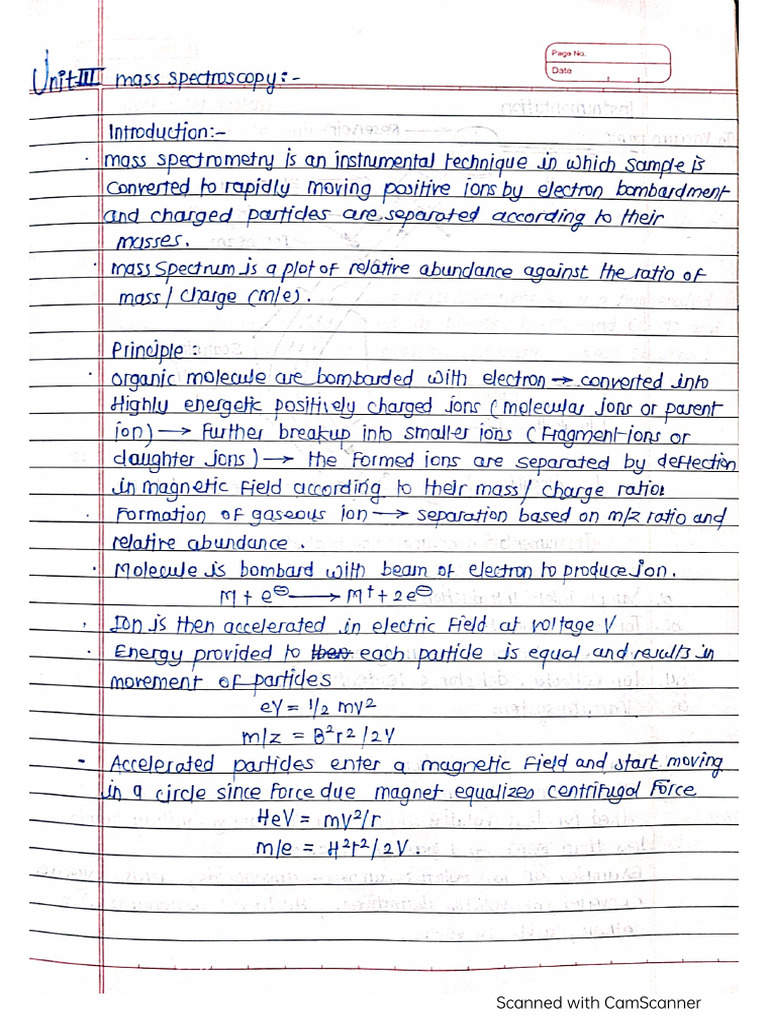 Page No.
Date
Unit-III mass spectroscopy:-
Introduction:-
· mass spectrometry is an instrumental technique in which sample is
converted to rapidly moving positive ions by electron bombardment
and charged particles are separated according to their
masses.
· mass spectrum is a plot of relative abundance against the ratio of
mass/ charge (m/e).
Principle:
· organic molecule are bombarded with electron → converted into
Highly energetic positively charged ions (molecular ions or parent
ion) → Further breakup into smaller ions (Fragment-ions or
daughter ions) → the formed ions are separated by deflection
in magnetic field according to their mass/ charge ratio.
· Formation of gaseous ion → separation based on m/z ratio and
relative abundance.
· Molecule is bombard with beam of electron to produce ion.
M + e⊖ → M⁺ + 2e⊖
· Ion is then accelerated in electric field at voltage V
· Energy provided to each particle is equal and results in
movement of particles
eV = 1/2 mv²
m/z = B²r²/2V
- Accelerated particles enter a magnetic field and start moving
in a circle since force due magnet equalizes centrifugal force
HeV = mv²/r
m/e = H²r²/2V.
Scanned with CamScanner